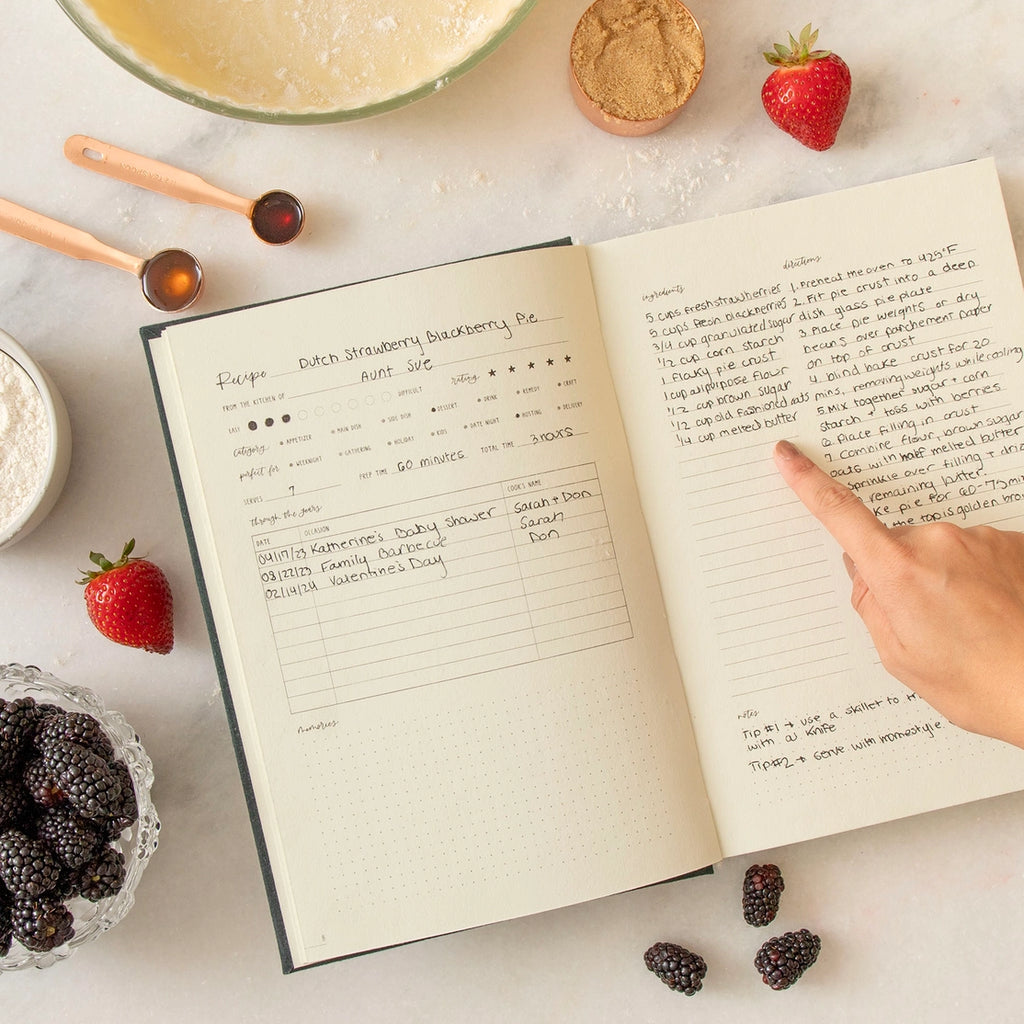 Recipe Dutch Strawberry Blackberry Pie
FROM THE KITCHEN OF Aunt Sue
EASY DIFFICULT rating ★ ★ ★ ★ ★
category • APPETIZER • MAIN DISH • SIDE DISH • DESSERT • DRINK • REMEDY • CRAFT
perfect for • WEEKNIGHT • GATHERING • HOLIDAY • KIDS • DATE NIGHT • HOSTING • DELIVERY
SERVES 7 PREP TIME 60 minutes TOTAL TIME 3 hours
through the years
DATE OCCASION COOK'S NAME
04/17/23 Katherine's Baby Shower Sarah + Don
08/22/23 Family Barbecue Sarah
02/14/24 Valentine's Day Don
memories
8
ingredients
5 cups fresh strawberries
5 cups fresh blackberries
3/4 cup granulated sugar
1/2 cup corn starch
1 flaky pie crust
1 cup allpurpose flour
1/2 cup brown sugar
1/2 cup old fashioned oats
1/4 cup melted butter
directions
1. Preheat the oven to 425°F
2. Fit pie crust into a deep
dish glass pie plate
3. Place pie weights or dry
beans over parchement paper
on top of crust
4. blind bake crust for 20
mins, removing weights while cooling
5. Mix together sugar + corn
starch + toss with berries
6. Place filling in crust
7 Combine flour, brown sugar
oats with half melted butter
sprinkle over filling +
remaining butter.
pie for 60-75 min
the top is golden
notes
Tip #1 → use a skillet to
with a knife
Tip #2 → serve with homestyle